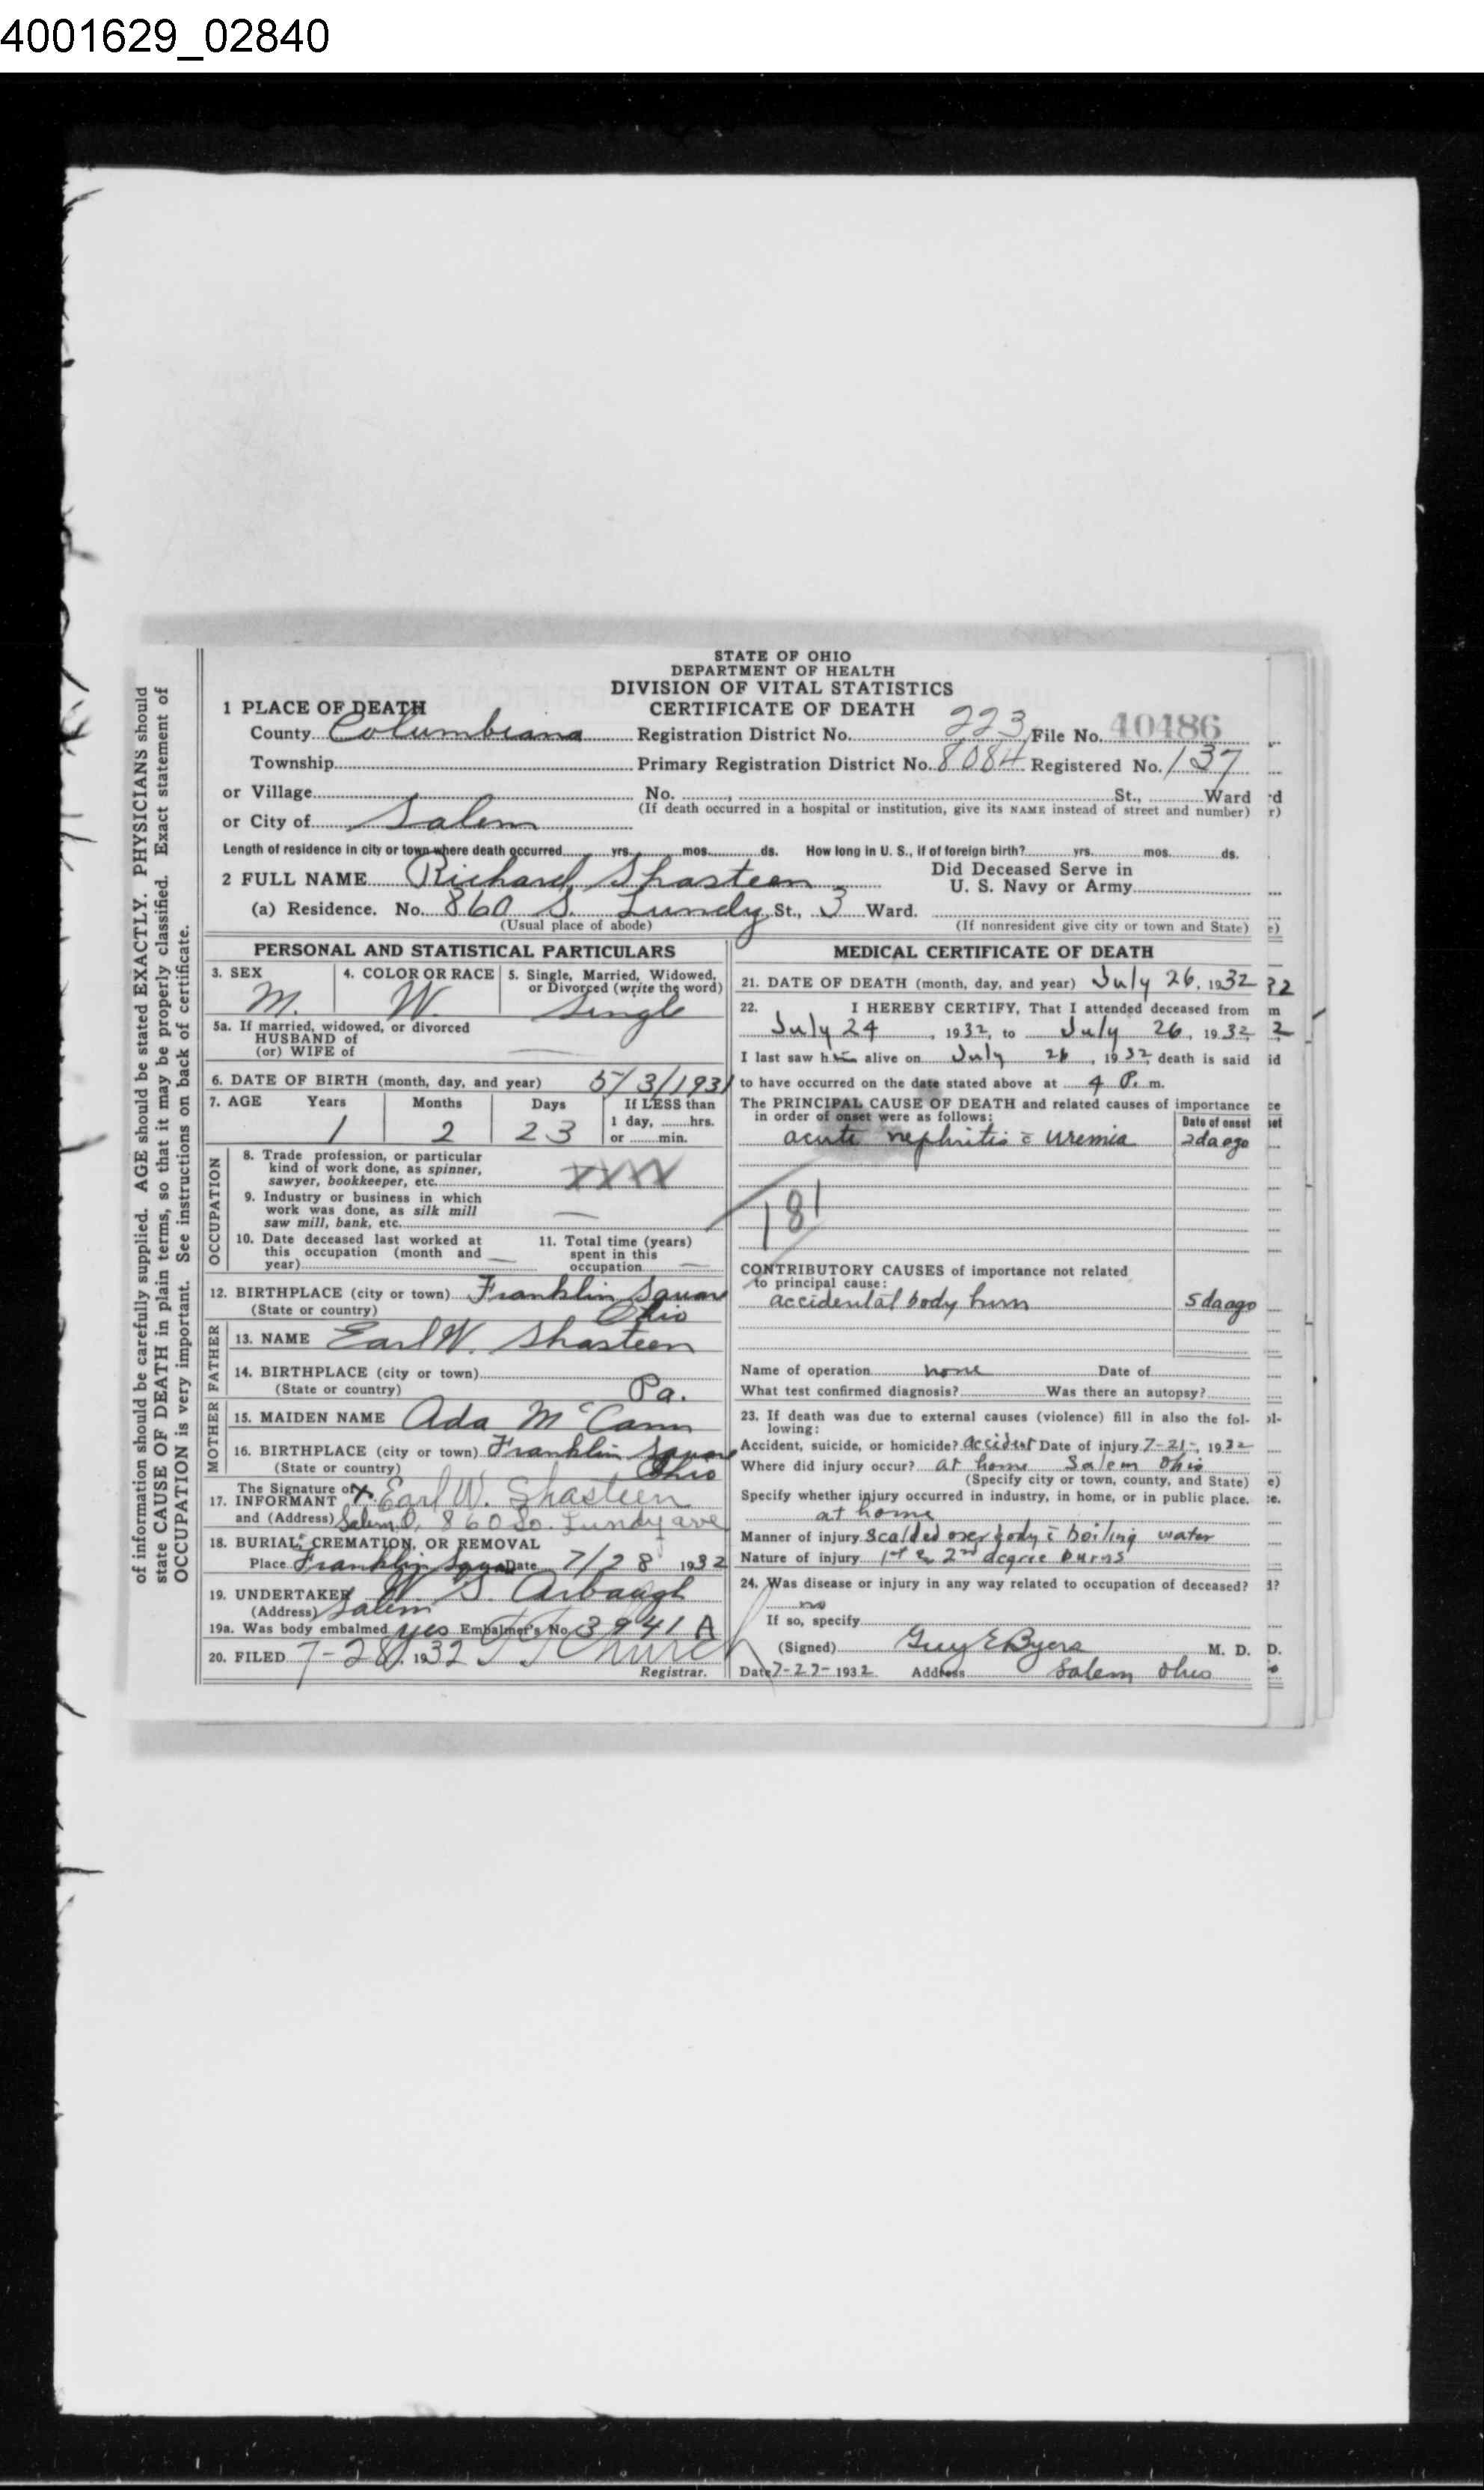 4001629_02840
of information should be carefully supplied. AGE should be stated EXACTLY. PHYSICIANS should
state CAUSE OF DEATH in plain terms, so that it may be properly classified. Exact statement of
OCCUPATION is very important. See instructions on back of certificate.
STATE OF OHIO
DEPARTMENT OF HEALTH
DIVISION OF VITAL STATISTICS
CERTIFICATE OF DEATH
1 PLACE OF DEATH
County Columbiana Registration District No. 223 File No. 40486
Township Primary Registration District No. 8084 Registered No. 137
or Village No. , St., Ward
(If death occurred in a hospital or institution, give its NAME instead of street and number)
or City of Salem
Length of residence in city or town where death occurred yrs. mos. ds. How long in U. S., if of foreign birth? yrs. mos. ds.
2 FULL NAME Richard Shasteen Did Deceased Serve in U. S. Navy or Army
(a) Residence. No. 860 S. Lundy St., 3 Ward.
(Usual place of abode) (If nonresident give city or town and State)
PERSONAL AND STATISTICAL PARTICULARS
3. SEX M.
4. COLOR OR RACE W.
5. Single, Married, Widowed, or Divorced (write the word) Single
5a. If married, widowed, or divorced
HUSBAND of
(or) WIFE of —
6. DATE OF BIRTH (month, day, and year) 5/3/1931
7. AGE Years 1 Months 2 Days 23 If LESS than 1 day, hrs. or min.
OCCUPATION
8. Trade profession, or particular
kind of work done, as spinner,
sawyer, bookkeeper, etc. XXXX
9. Industry or business in which
work was done, as silk mill
saw mill, bank, etc. —
10. Date deceased last worked at
this occupation (month and
year) —
11. Total time (years)
spent in this
occupation —
12. BIRTHPLACE (city or town) Franklin Square
(State or country) Ohio
FATHER
13. NAME Earl W. Shasteen
14. BIRTHPLACE (city or town)
(State or country) Pa.
MOTHER
15. MAIDEN NAME Ada McCann
16. BIRTHPLACE (city or town) Franklin Square
(State or country) Ohio
17. The Signature of INFORMANT X Earl W. Shasteen
and (Address) Salem O, 860 So. Lundy ave
18. BURIAL, CREMATION, OR REMOVAL
Place Franklin Square Date 7/28 1932
19. UNDERTAKER W. S. Arbaugh
(Address) Salem
19a. Was body embalmed yes Embalmer's No. 3941 A
20. FILED 7-28, 1932 Church
Registrar.
MEDICAL CERTIFICATE OF DEATH
21. DATE OF DEATH (month, day, and year) July 26, 1932
22. I HEREBY CERTIFY, That I attended deceased from
July 24, 1932, to July 26, 1932
I last saw him alive on July 26, 1932, death is said
to have occurred on the date stated above at 4 P. m.
The PRINCIPAL CAUSE OF DEATH and related causes of importance
in order of onset were as follows: Date of onset
acute nephritis c̄ uremia 2 da ago
181
CONTRIBUTORY CAUSES of importance not related
to principal cause:
accidental body burn 5 da ago
Name of operation none Date of
What test confirmed diagnosis? Was there an autopsy?
23. If death was due to external causes (violence) fill in also the following:
Accident, suicide, or homicide? accident Date of injury 7-21-, 1932
Where did injury occur? at home Salem Ohio
(Specify city or town, county, and State)
Specify whether injury occurred in industry, in home, or in public place.
at home
Manner of injury Scalded over body c̄ boiling water
Nature of injury 1st & 2nd degree burns
24. Was disease or injury in any way related to occupation of deceased?
no
If so, specify
(Signed) Guy E Byers M. D.
Date 7-27-1932 Address Salem Ohio